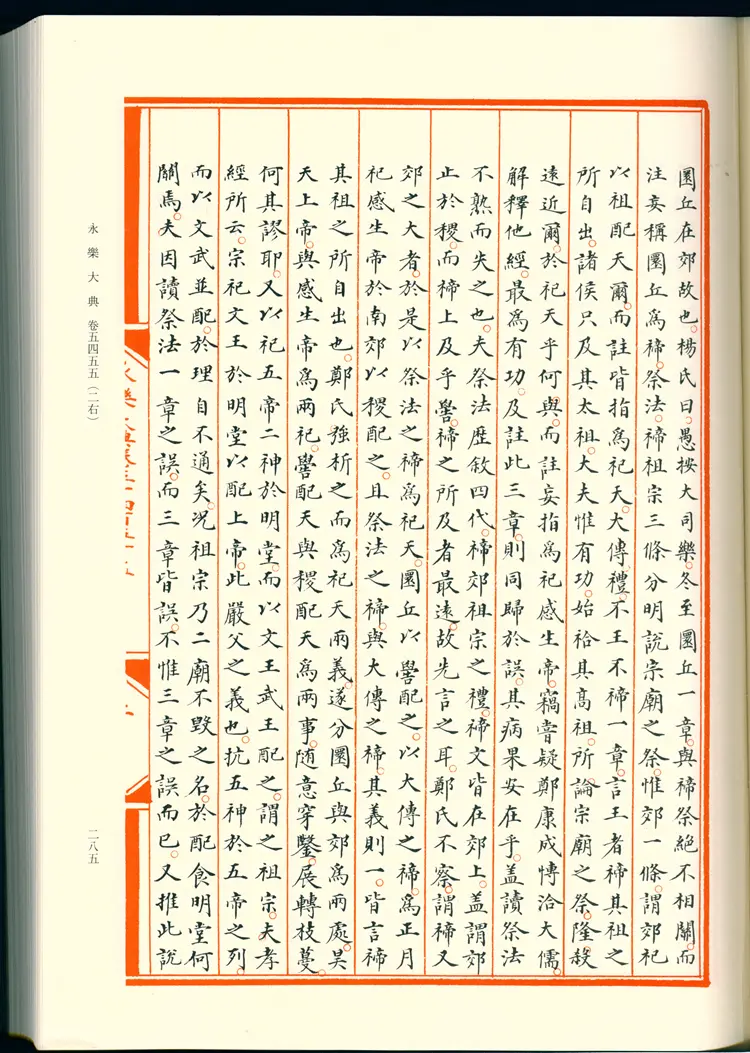 圜丘在郊故也。楊氏曰。愚按大司樂。冬至圜丘一章。與禘祭絶不相關。而
注妄稱圜丘爲禘。祭法。禘祖宗三條。分明說宗廟之祭。惟郊一條。謂郊祀
以祖配天爾。而註皆指爲祀天。大傳。禮。不王不禘一章。言王者禘其祖之
所自出。諸侯只及其太祖。大夫惟有功。始祫其高祖。所論宗廟之祭。隆殺
遠近爾。於祀天乎何與。而註妄指爲祀感生帝。竊嘗疑鄭康成博洽大儒。
解釋他經。最爲有功。及註此三章。則同歸於誤。其病果安在乎。盖讀祭法
不熟而失之也。夫祭法歷敘四代。禘郊祖宗之禮。禘文皆在郊上。盖謂郊
止於稷。而禘上及乎嚳。禘之所及者最遠。故先言之耳。鄭氏不察。謂禘又
郊之大者。於是以祭法之禘爲祀天。圜丘以嚳配之。以大傳之禘。爲正月
祀感生帝於南郊。以稷配之。且祭法之禘。與大傳之禘。其義則一。皆言禘
其祖之所自出也。鄭氏强析之而爲祀天兩義。遂分圜丘與郊爲兩處。昊
天上帝。與感生帝爲兩祀。嚳配天與稷配天爲兩事。隨意穿鑿。展轉枝蔓。
何其謬耶。又以祀五帝二神於明堂。而以文王武王配之。謂之祖宗。夫孝
經所云。宗祀文王於明堂以配上帝。此嚴父之義也。抗五神於五帝之列。
而以文武並配。於理自不通矣。况祖宗乃二廟不毀之名。於配食明堂何
關焉。夫因讀祭法一章之誤。而三章皆誤。不惟三章之誤而已。又推此說
永樂大典卷五千四百五十五
二
永樂大典 卷五四五五（二右）
二八五